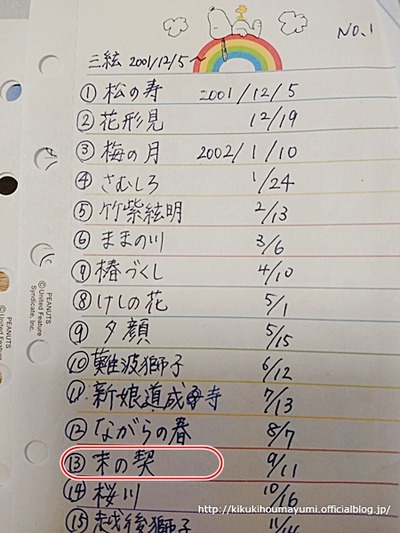 NO.1
三絃 2001/12/5~
① 松の寿 2001/12/5
② 花形見 12/19
③ 梅の月 2002/1/10
④ さむしろ 1/24
⑤ 竹紫絃明 2/13
⑥ ままの川 3/6
⑦ 椿づくし 4/10
⑧ けしの花 5/1
⑨ 夕顔 5/15
⑩ 難波獅子 6/12
⑪ 新娘道成寺 7/13
⑫ ながらの春 8/7
⑬ 末の契 9/11
⑭ 桜川 10/16
⑮ 越後獅子 11/14
PEANUTS
© United Feature
Syndicate, Inc.
PEANUTS
© United Feature
http://kikukihoumayumi.officialblog.jp/